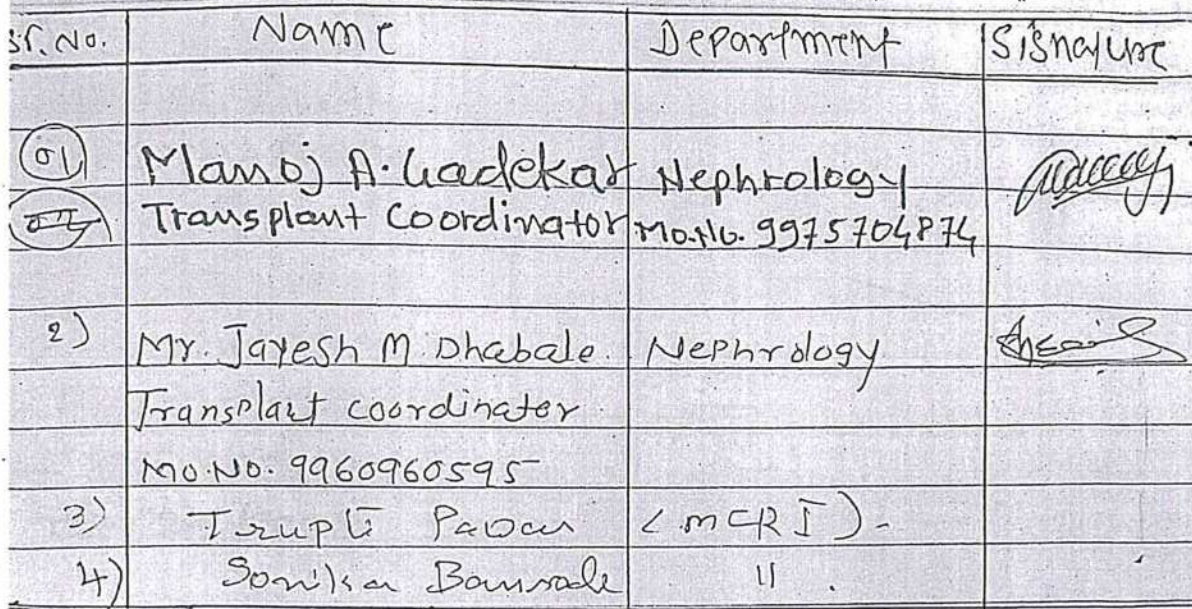 Sr. No. Name Department Signature
01 Manoj A. Gadekar Nephrology
Transplant Coordinator Mo.No. 9975704874
2) Mr. Jayesh M. Dhabale. Nephrology
Transplant coordinater
MO.NO. 9960960595
3) Trupti Pawar (MCRI) -
4) 11